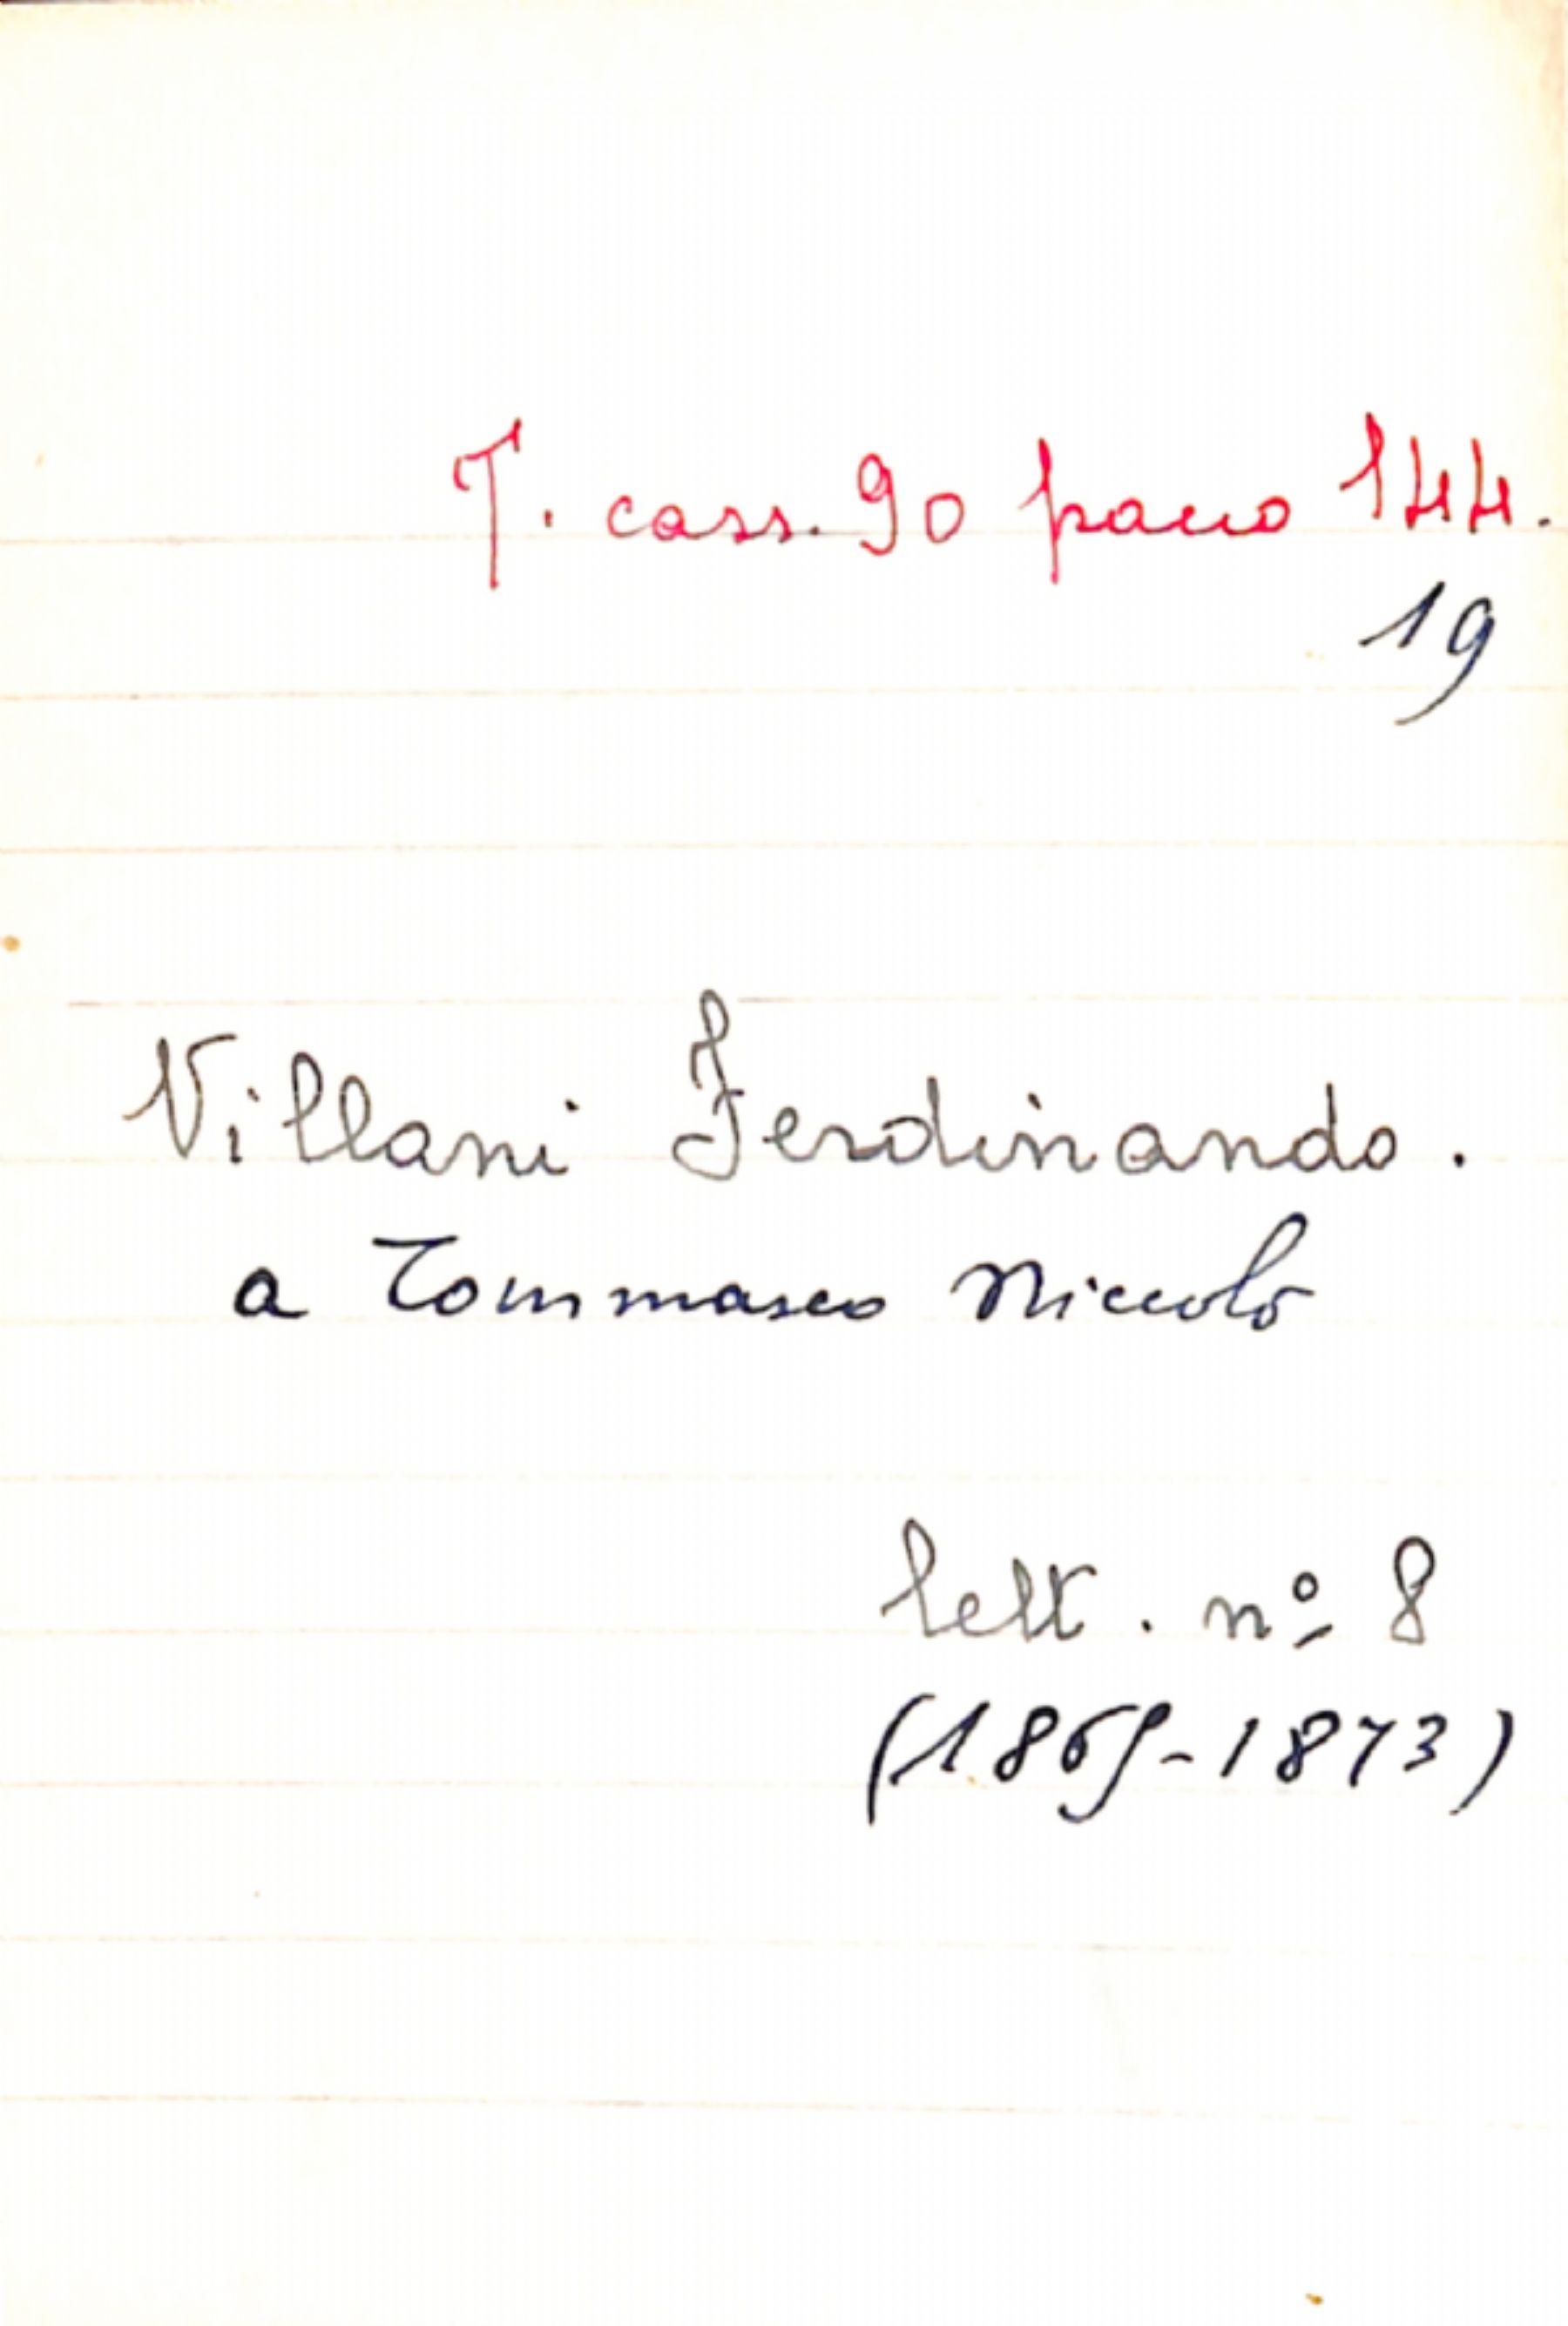 T. cass. 90 pacco 144.
19
Villani Ferdinando.
a Tommaseo Niccolò
lett. nº 8
(1869-1873)